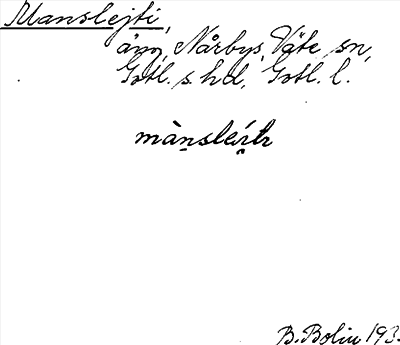 Manslejti,
äng, Nårbys, Väte sn,
Gotl. s. hd, Gotl. l.
mànsleíti
B. Bolin 193